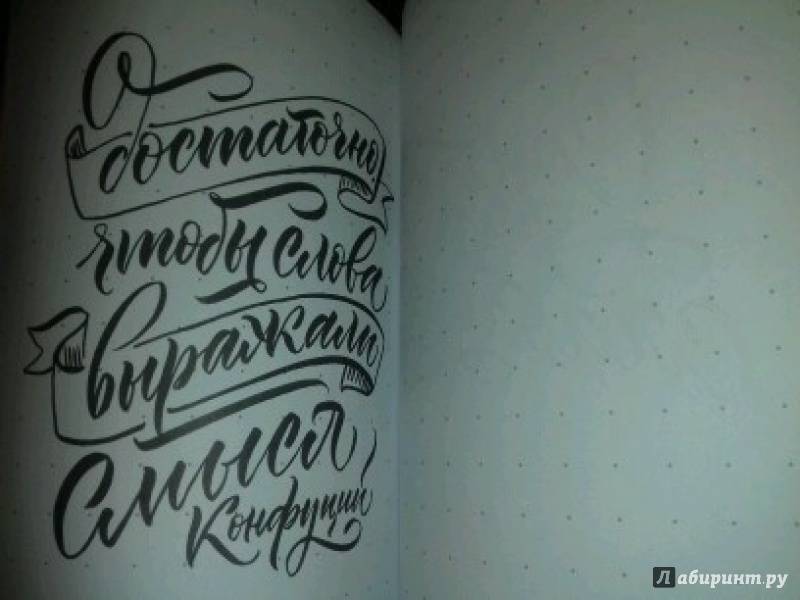 достаточно,
чтобы слова
выражали
смысл
Конфуций
Лабиринт.ру